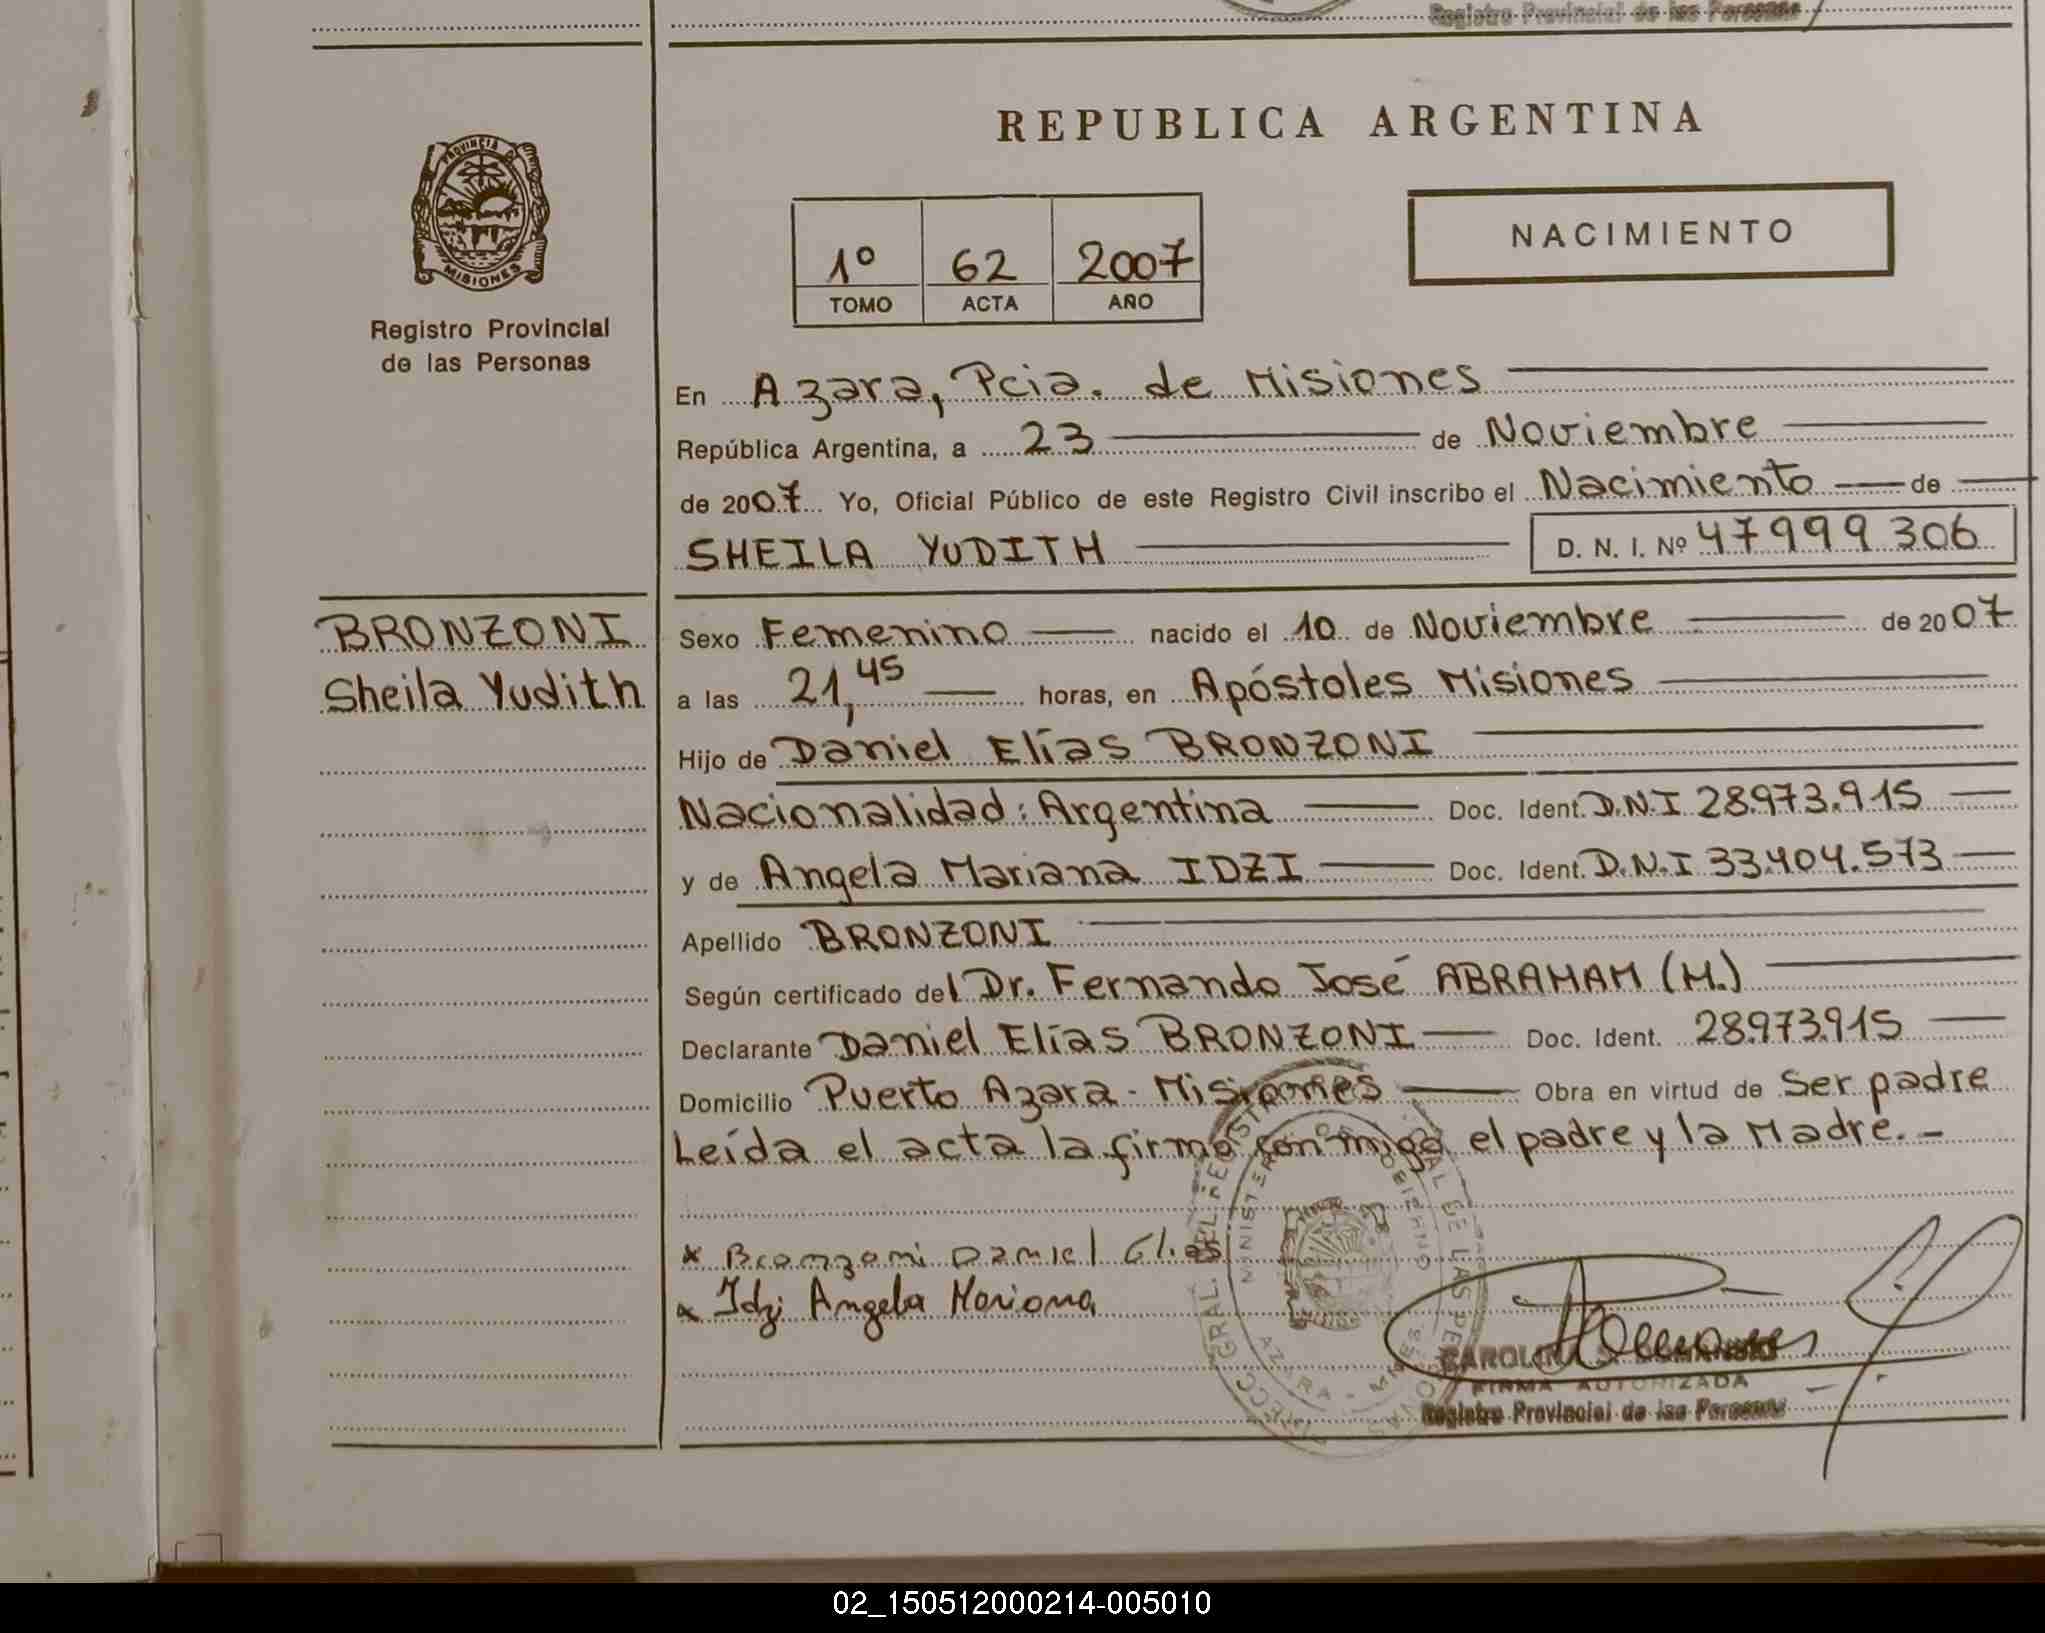 Registro Provincial de las Personas
REPUBLICA ARGENTINA
PROVINCIA DE
MISIONES
Registro Provincial
de las Personas
1º 62 2007
TOMO ACTA AÑO
NACIMIENTO
En Azara, Pcia. de Misiones
República Argentina, a 23 de Noviembre
de 2007 Yo, Oficial Público de este Registro Civil inscribo el Nacimiento de
SHEILA YUDITH D. N. I. Nº 47999306
BRONZONI
Sheila Yudith
Sexo Femenino nacido el 10 de Noviembre de 2007
a las 21,45 horas, en Apóstoles Misiones
Hijo de Daniel Elías BRONZONI
Nacionalidad: Argentina Doc. Ident. D.N.I 28.973.915
y de Angela Mariana IDZI Doc. Ident. D.N.I 33.404.573
Apellido BRONZONI
Según certificado del Dr. Fernando José ABRAHAM (M.)
Declarante Daniel Elías BRONZONI Doc. Ident. 28.973.915
Domicilio Puerto Azara - Misiones Obra en virtud de Ser padre
Leída el acta la firma con migo el padre y la Madre. -
x Bronzoni Daniel Elias
x Idzi Angela Mariana
AZARA - MNES.
FIRMA AUTORIZADA
Registro Provincial de las Personas
02_150512000214-005010